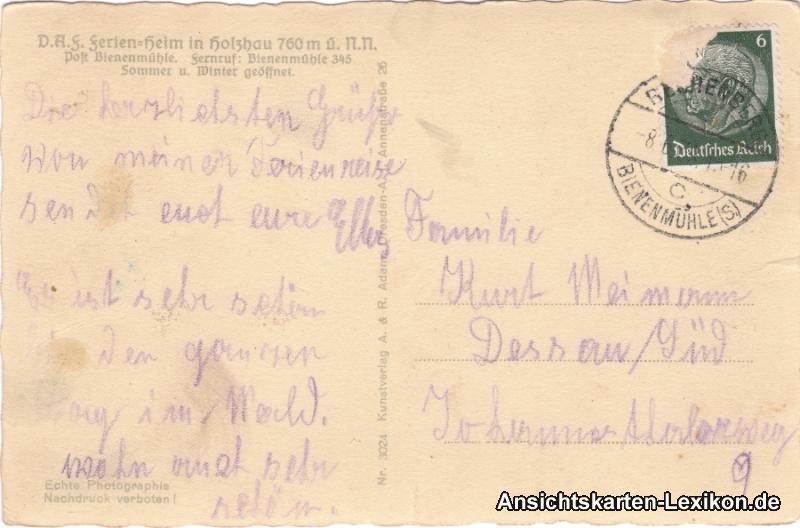 D.A.F. Ferien=Heim in Holzhau 760 m ü. N.N.
Post Bienenmühle. Fernruf: Bienenmühle 345
Sommer u. Winter geöffnet.
Die herzlichsten Grüße
von meiner Ferienreise
sendet euch eure Elly
Es ist sehr schön
den ganzen
im Wald.
wohn auch sehr
schön.
Echte Photographie
Nachdruck verboten!
Nr. 3024 Kunstverlag A. & R. Adam, Dresden-A., Annenstraße 25
6
Deutsches Reich
BIENENMÜHLE (S.)
c
Familie
Kurt Weimann
Dessau/Süd
9
Ansichtskarten-Lexikon.de